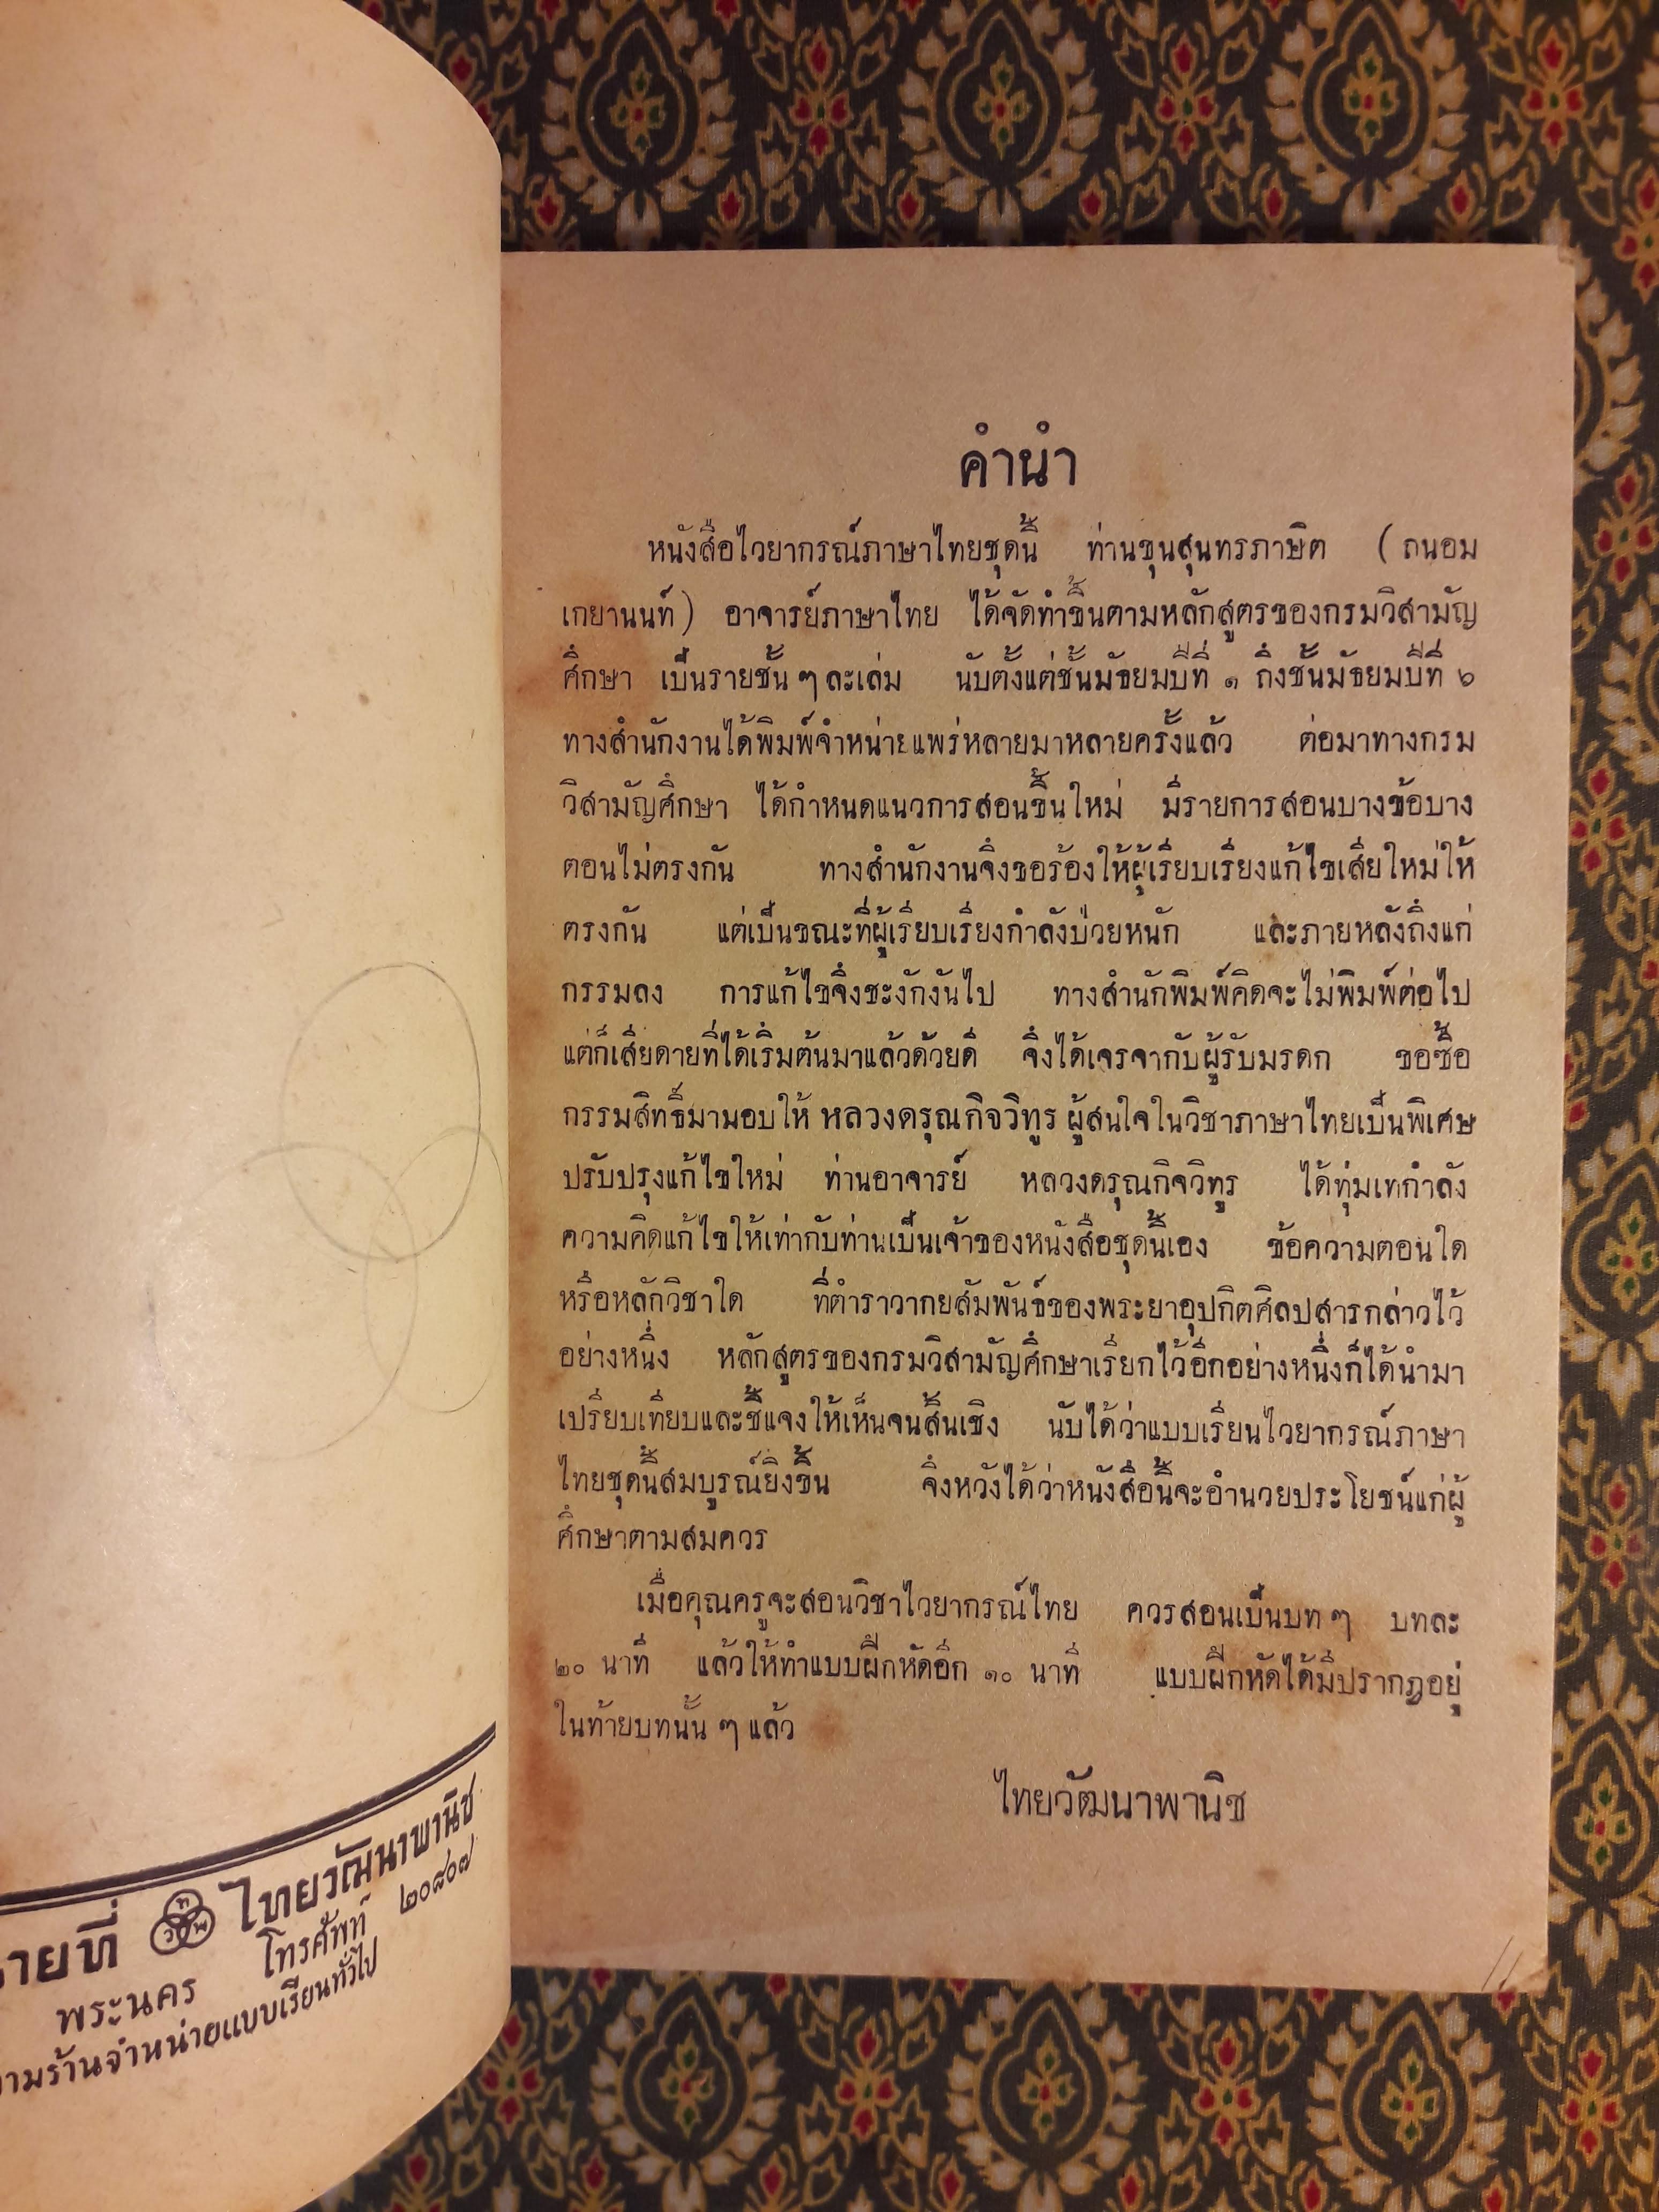 คำนำ
หนังสือไวยากรณ์ภาษาไทยชุดนี้ ท่านขุนสุนทรภาษิต (ถนอม
เกยานนท์) อาจารย์ภาษาไทย ได้จัดทำขึ้นตามหลักสูตรของกรมวิสามัญ
ศึกษา เป็นรายชั้น ๆ ละเล่ม นับตั้งแต่ชั้นมัธยมปีที่ ๑ ถึงชั้นมัธยมปีที่ ๖
ทางสำนักงานได้พิมพ์จำหน่ายแพร่หลายมาหลายครั้งแล้ว ต่อมาทางกรม
วิสามัญศึกษา ได้กำหนดแนวการสอนขึ้นใหม่ มีรายการสอนบางข้อบาง
ตอนไม่ตรงกัน ทางสำนักงานจึงขอร้องให้ผู้เรียบเรียงแก้ไขเสียใหม่ให้
ตรงกัน แต่เป็นขณะที่ผู้เรียบเรียงกำลังป่วยหนัก และภายหลังถึงแก่
กรรมลง การแก้ไขจึงชะงักงันไป ทางสำนักพิมพ์คิดจะไม่พิมพ์ต่อไป
แต่ก็เสียดายที่ได้เริ่มต้นมาแล้วด้วยดี จึงได้เจรจากับผู้รับมรดก ขอซื้อ
กรรมสิทธิ์มามอบให้ หลวงดรุณกิจวิทูร ผู้สนใจในวิชาภาษาไทยเป็นพิเศษ
ปรับปรุงแก้ไขใหม่ ท่านอาจารย์ หลวงดรุณกิจวิทูร ได้ทุ่มเทกำลัง
ความคิดแก้ไขให้เท่ากับท่านเป็นเจ้าของหนังสือชุดนี้เอง ข้อความตอนใด
หรือหลักวิชาใด ที่ตำราวากยสัมพันธ์ของพระยาอุปกิตศิลปสารกล่าวไว้
อย่างหนึ่ง หลักสูตรของกรมวิสามัญศึกษาเรียกไว้อีกอย่างหนึ่งก็ได้นำมา
เปรียบเทียบและชี้แจงให้เห็นจนสิ้นเชิง นับได้ว่าแบบเรียนไวยากรณ์ภาษา
ไทยชุดนี้สมบูรณ์ยิ่งขึ้น จึงหวังได้ว่าหนังสือนี้จะอำนวยประโยชน์แก่ผู้
ศึกษาตามสมควร
เมื่อคุณครูจะสอนวิชาไวยากรณ์ไทย ควรสอนเป็นบท ๆ บทละ
๒๐ นาที แล้วให้ทำแบบฝึกหัดอีก ๑๐ นาที แบบฝึกหัดได้มีปรากฏอยู่
ในท้ายบทนั้น ๆ แล้ว
ไทยวัฒนาพานิช
ายที่ ไทยวัฒนาพานิช
พระนคร โทรศัพท์ ๒๐๘๐๗
ามร้านจำหน่ายแบบเรียนทั่วไป